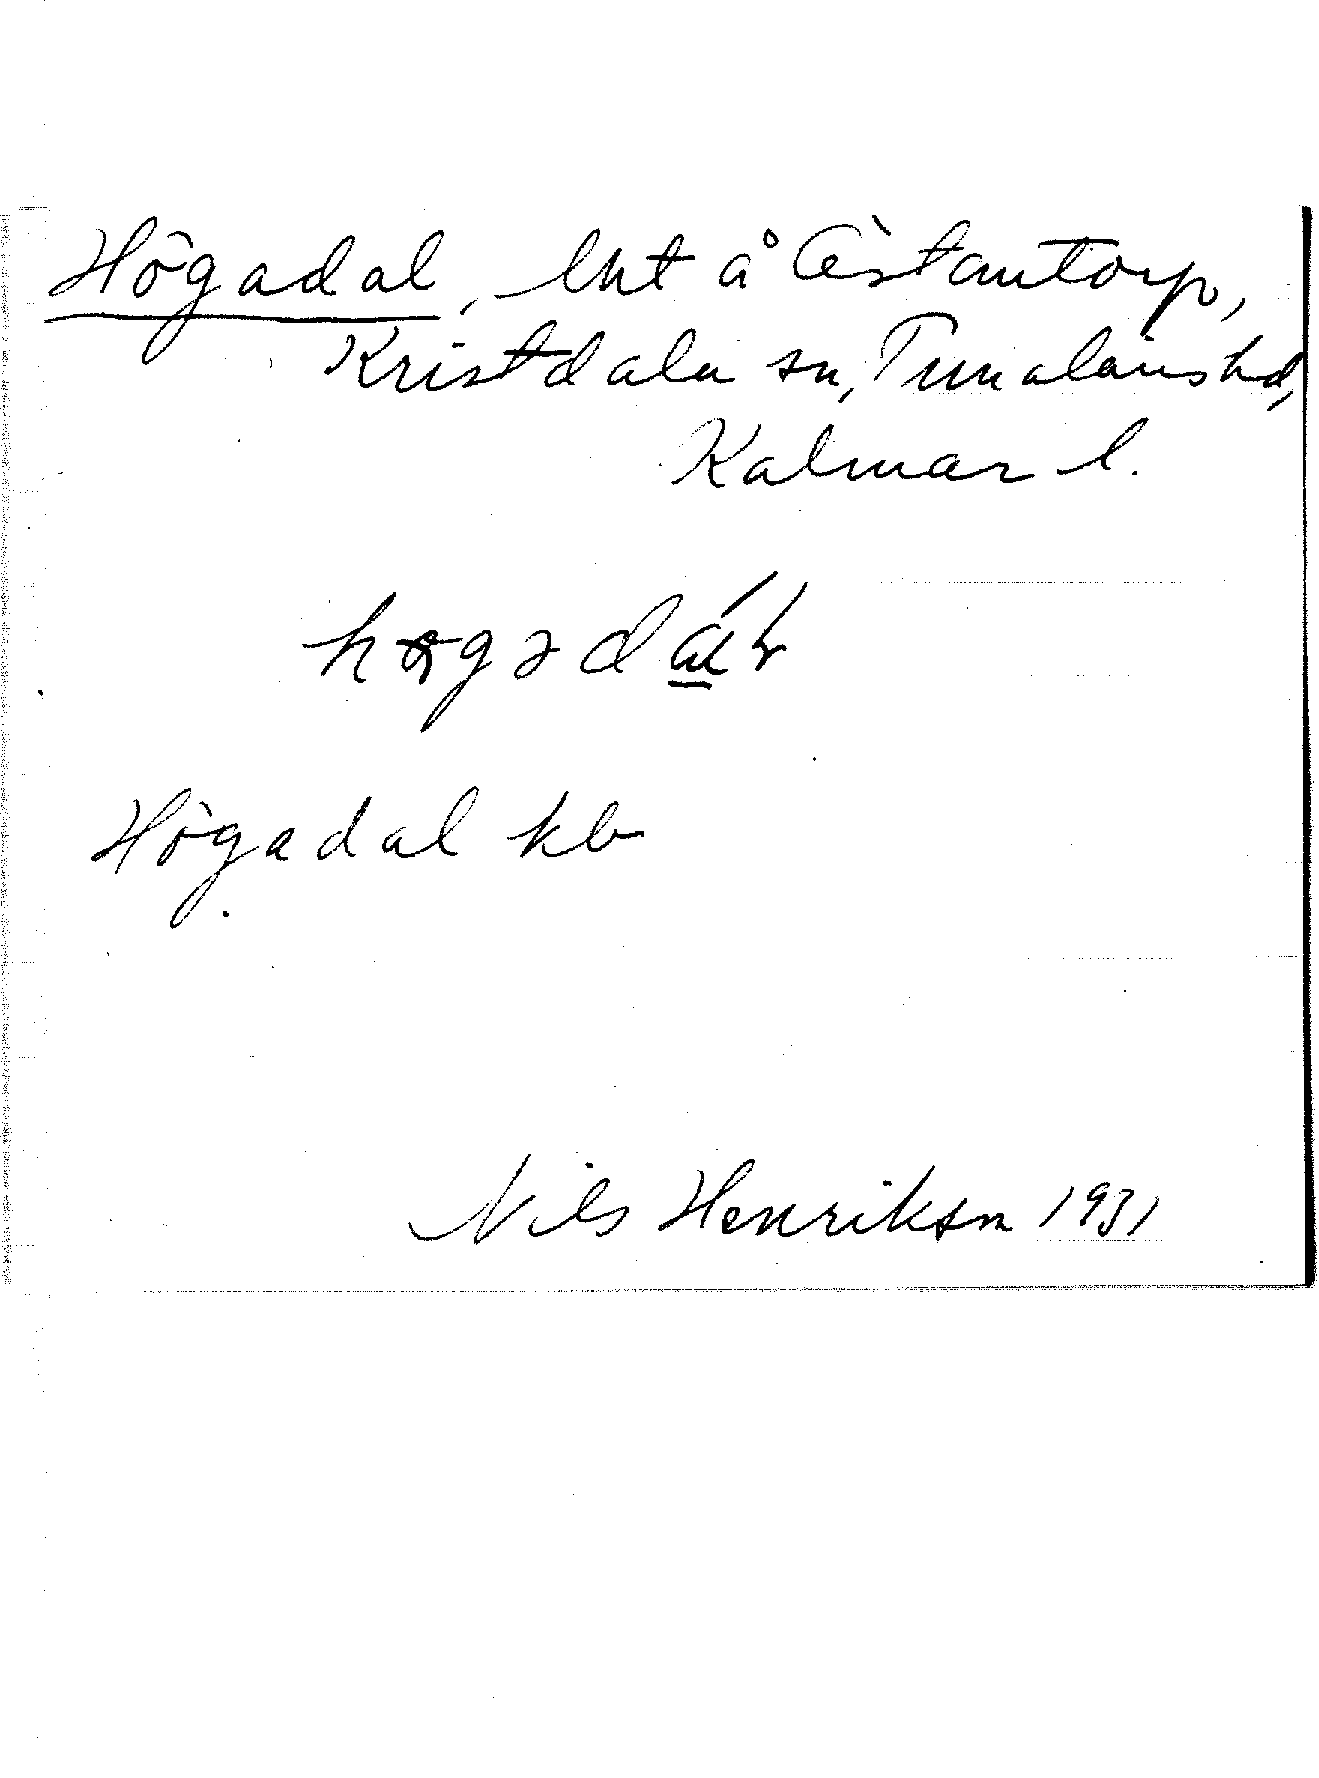 Högadal, lht å Östantorp,
Kristdala sn, Tunaläns hd,
Kalmar l.
Högadal kb
Nils Henriksn 1931